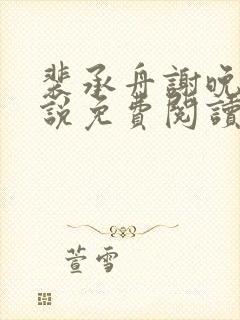 裴承舟謝晚
說免費閱讀
萱雪